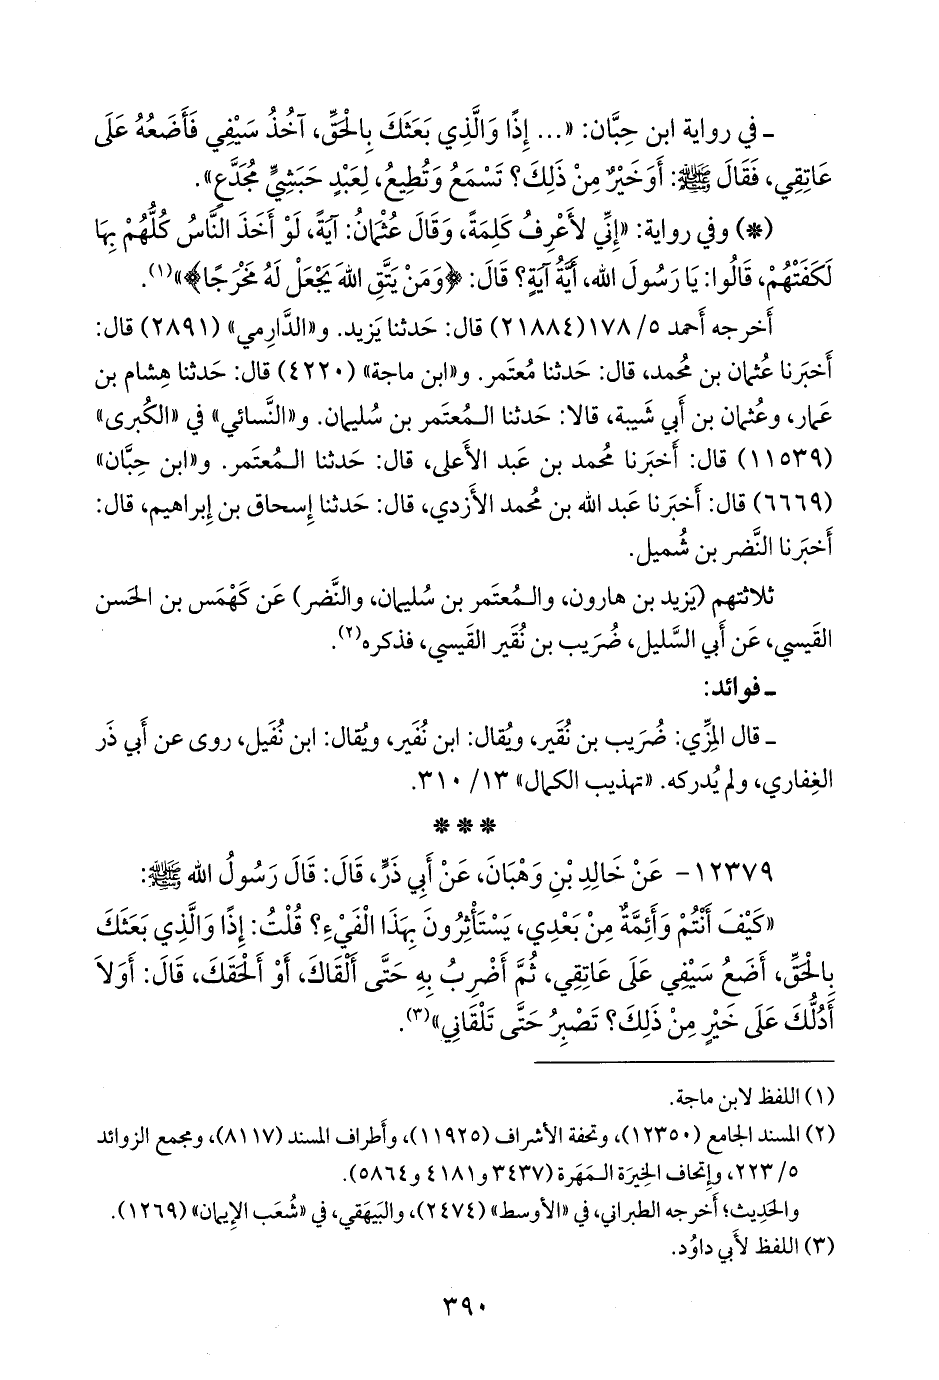 ـ في رواية ابن حِبَّان: «... إِذًا وَالَّذِي بَعَثَكَ بِالْحَقِّ، آخُذُ سَيْفِي فَأَضَعُهُ عَلَى
عَاتِقِي، فَقَالَ ﷺ: أَوَخَيْرٌ مِنْ ذَلِكَ؟ تَسْمَعُ وَتُطِيعُ، لِعَبْدٍ حَبَشِيٍّ مُجَدَّعٍ».
(*) وفي رواية: «إِنِّي لأَعْرِفُ كَلِمَةً، وَقَالَ عُثْمَانُ: آيَةً، لَوْ أَخَذَ النَّاسُ كُلُّهُمْ بِهَا
لَكَفَتْهُمْ، قَالُوا: يَا رَسُولَ الله، أَيَّةُ آيَةٍ؟ قَالَ: ﴿وَمَنْ يَتَّقِ اللهَ يَجْعَلْ لَهُ مَخْرَجًا﴾»(١).
أَخرجه أَحمد ٥/ ١٧٨(٢١٨٨٤) قال: حَدثنا يَزيد. و«الدَّارِمي» (٢٨٩١) قال:
أَخبَرنا عُثمان بن مُحمد، قال: حَدثنا مُعتَمر. و«ابن ماجة» (٤٢٢٠) قال: حَدثنا هِشام بن
عمار، وعُثمان بن أَبي شَيبة، قالا: حَدثنا الـمُعتَمر بن سُليمان. و«النَّسائي» في «الكُبرى»
(١١٥٣٩) قال: أَخبَرنا مُحمد بن عَبد الأَعلى، قال: حَدثنا الـمُعتَمر. و«ابن حِبَّان»
(٦٦٦٩) قال: أَخبَرنا عَبد الله بن مُحمد الأَزدي، قال: حَدثنا إِسحاق بن إِبراهيم، قال:
أَخبَرنا النَّضر بن شُميل.
ثلاثتهم (يَزيد بن هارون، والـمُعتَمر بن سُليمان، والنَّضر) عَن كَهْمَس بن الحَسن
القَيسي، عَن أَبي السَّليل، ضُرَيب بن نُقَير القَيسي، فذكره(٢).
ـ فوائد:
ـ قال المِزِّي: ضُرَيب بن نُقَير، ويُقال: ابن نُفَير، ويُقال: ابن نُفَيل، روى عن أَبي ذَر
الغِفاري، ولم يُدركه. «تهذيب الكمال» ١٣/ ٣١٠.
* * *
١٢٣٧٩- عَنْ خَالِدِ بْنِ وَهْبَانَ، عَنْ أَبِي ذَرٍّ، قَالَ: قَالَ رَسُولُ الله ﷺ:
«كَيْفَ أَنْتُمْ وَأَئِمَّةٌ مِنْ بَعْدِي، يَسْتَأْثِرُونَ بِهَذَا الْفَيْءِ؟ قُلْتُ: إِذًا وَالَّذِي بَعَثَكَ
بِالْحَقِّ، أَضَعُ سَيْفِي عَلَى عَاتِقِي، ثُمَّ أَضْرِبُ بِهِ حَتَّى أَلْقَاكَ، أَوْ أَلْحَقَكَ، قَالَ: أَوَلاَ
أَدُلُّكَ عَلَى خَيْرٍ مِنْ ذَلِكَ؟ تَصْبِرُ حَتَّى تَلْقَانِي»(٣).
(١) اللفظ لابن ماجة.
(٢) المسند الجامع (١٢٣٥٠)، وتحفة الأشراف (١١٩٢٥)، وأطراف المسند (٨١١٧)، ومجمع الزوائد
٥/ ٢٢٣، وإتحاف الخِيرَة الـمَهَرة (٣٤٣٧ و٤١٨١ و٥٨٦٤).
والحَدِيث؛ أخرجه الطبراني، في «الأوسط» (٢٤٧٤)، والبَيهَقي، في «شُعَب الإيمان» (١٢٦٩).
(٣) اللفظ لأبي داوُد.
٣٩٠